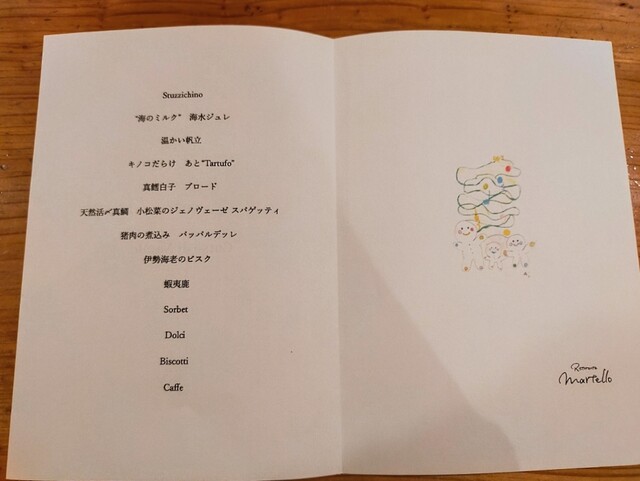 Stuzzichino
"海のミルク" 海水ジュレ
温かい帆立
キノコだらけ あと"Tartufo"
真鱈白子 ブロード
天然活〆真鯛 小松菜のジェノヴェーゼ スパゲッティ
猪肉の煮込み パッパルデッレ
伊勢海老のビスク
蝦夷鹿
Sorbet
Dolci
Biscotti
Caffe
martello